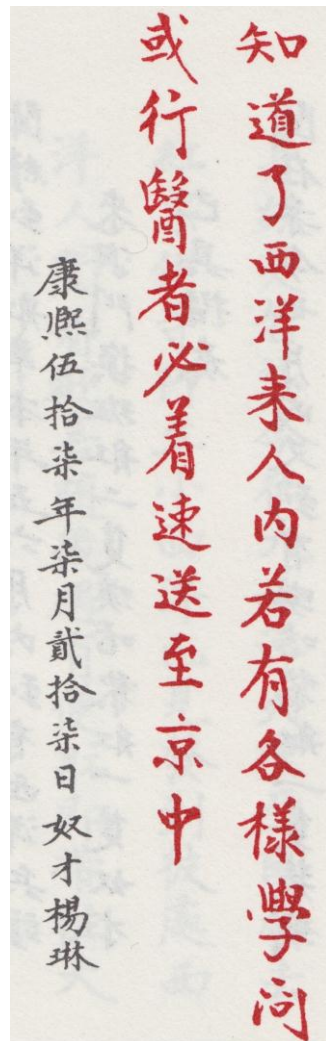 知道了西洋来人内若有各樣學问
或行醫者必着速送至京中
康熙伍拾柒年柒月貳拾柒日奴才楊琳